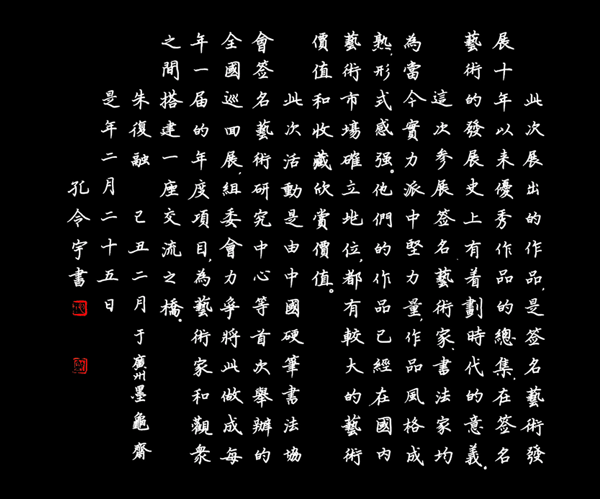 此次展出的作品,是签名藝術發
展十年以来優秀作品的總集.在签名
藝術的發展史上有着劃時代的意義。
這次參展签名藝術家.書法家均
為當今實力派中堅力量,作品風格成
熟,形式感强。他們的作品已經在國内
藝術市場確立地位,都有較大的藝術
價值和收藏欣賞價值。
此次活動是由中國硬筆書法協
會签名藝術研究中心等首次舉辦的
全國巡回展,組委會力爭將此做成每
年一届的年度項目,為藝術家和觀衆
之間搭建一座交流之橋。
朱復融 己丑二月于廣州墨龜齋
是年二月二十五日
孔令宇書